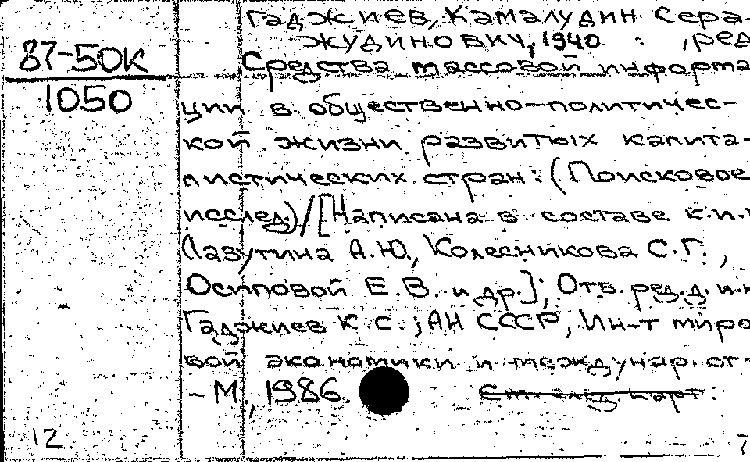 Гаджиев, Камалудин Сера-
жудинович, 1940- , ред
87-50К
Средства массовой информа
1050
ции в общественно-политичес-
кой жизни развитых капита-
листических стран: (Поисковое
исслед.)/[Написана в составе к.и.н
Лазутина А.Ю., Колесникова С.Г.,
Осиповой Е.В. и др.]; Отв. ред. д.и.н
Гаджиев К.С.; АН СССР, Ин-т миро
вой экономики и междунар. от-
- М., 1986.
См. след карт.
12